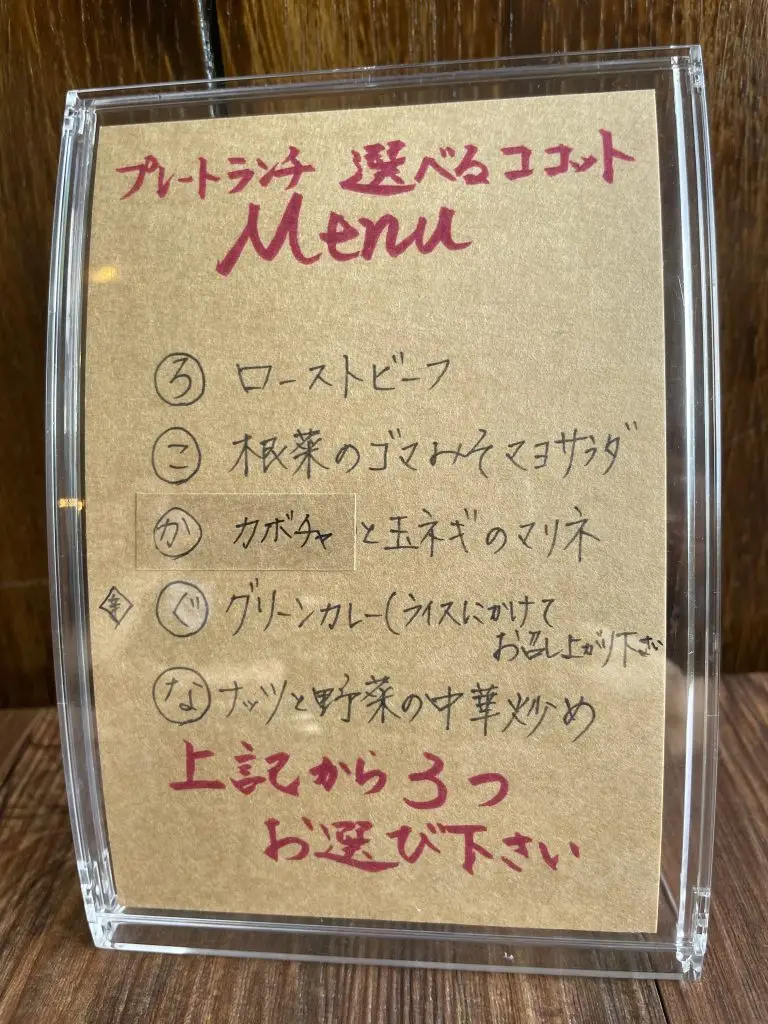 プレートランチ 選べるココット
Menu
ろ ローストビーフ
こ 根菜のゴマみそマヨサラダ
か カボチャと玉ネギのマリネ
ぐ グリーンカレー(ライスにかけて
お召し上がり下さい
な ナッツと野菜の中華炒め
上記から3つ
お選び下さい